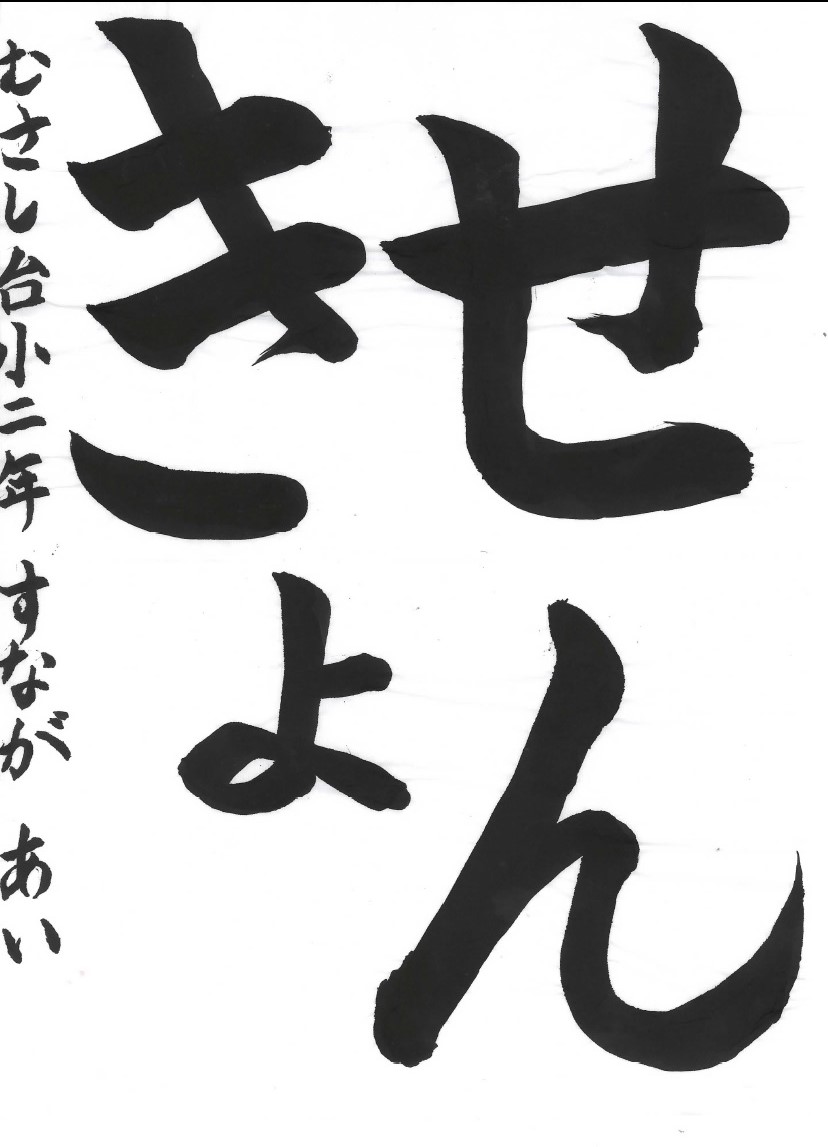 せん
きょ
むさし台小二年 すなが あい